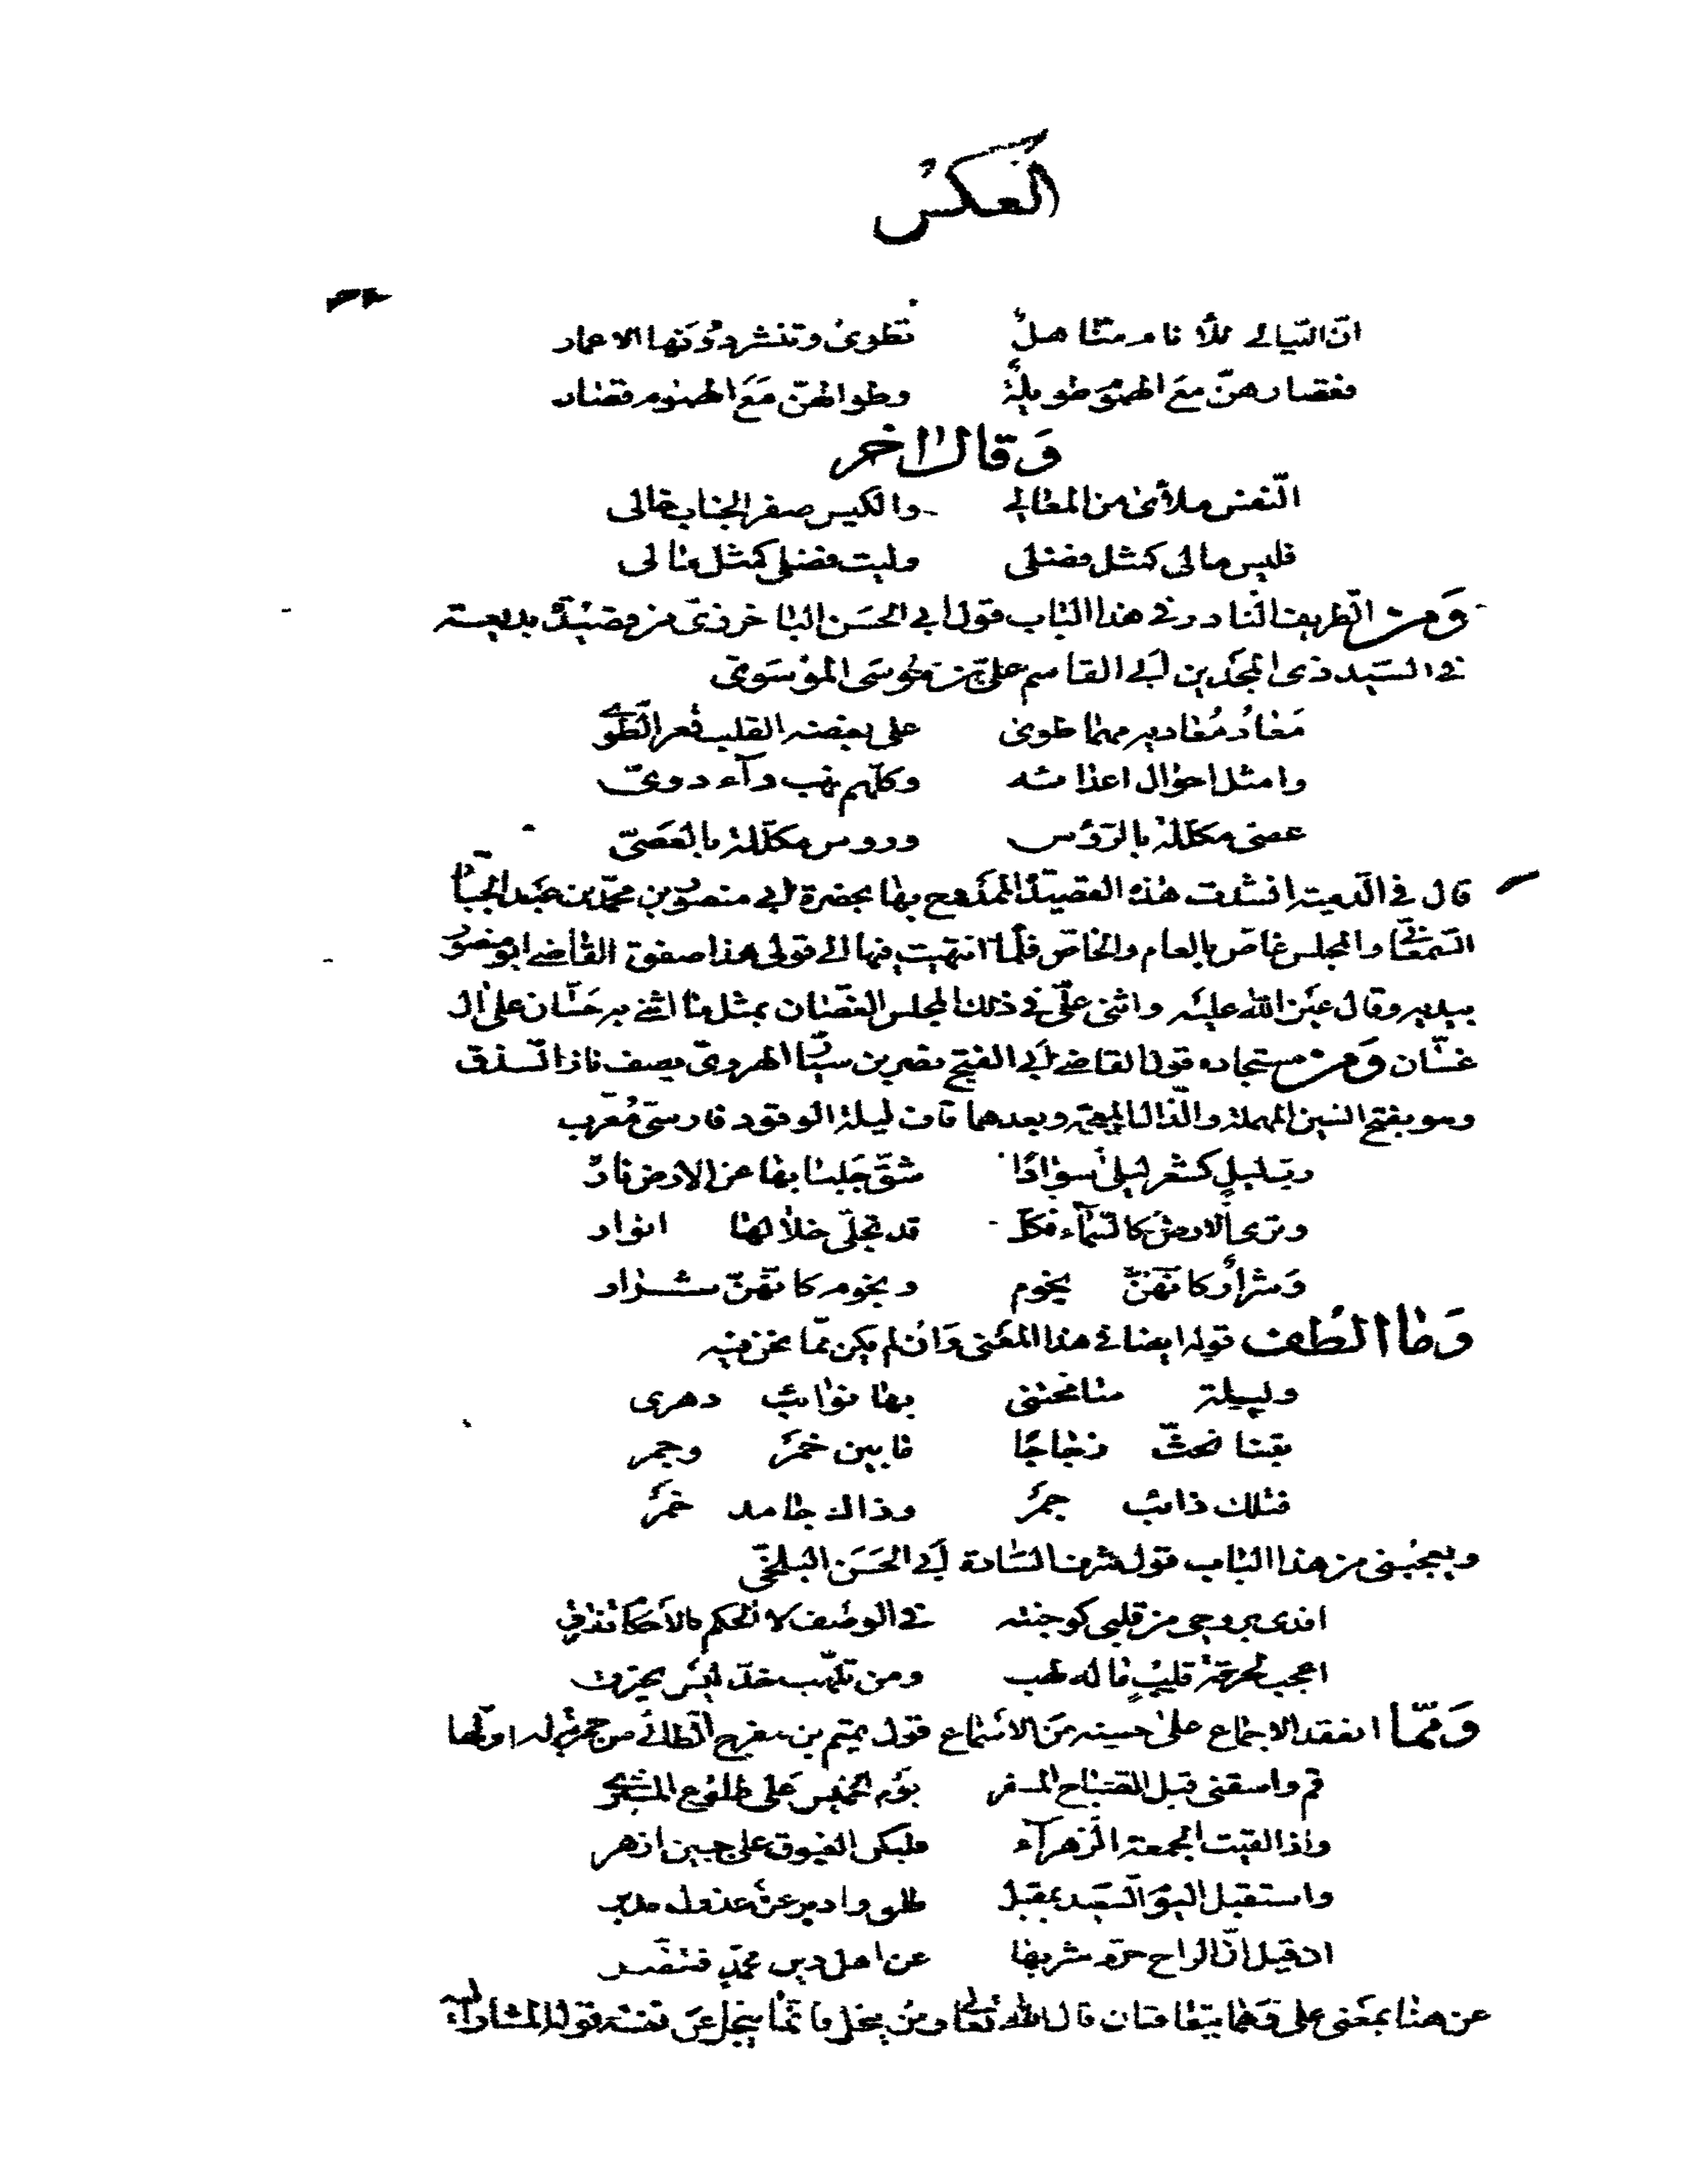 العكس
انّ الليالي للأنام مناهلٌ تطوى وتنشر دونها الاعمار
فقصارهنّ مع الهموم طويلة وطوالهنّ مع الهموم قصار
وقال اخر
النّفس ملأى من المعالي والكيس صفر الجناب خالى
فليس مالى كمثل فضلى وليت فضلى كمثل مالى
ومن الطريف النادر في هذا الباب قول ابي الحسن الباخرزىّ من قصيدة بديعية
في السّيد ذى المجدين ابي القاسم علىّ بن موسى الموسوىّ
معاد معاديه مهما طوى على بغضه القلب قعر الطوى
وامثل احوال اعدائه وكلّهم نهب دآء دوىّ
عصى مكللة بالرؤس وروس مكلّلة بالعصىّ
قال في الدمية انشدت هذه القصيدة الممدوح بها بحضرة ابي منصور بن محمّد بن عبد الجبّار
السّمعانى والمجلس غاصّ بالعام والخاصّ فلمّا انتهيت فيها الى قولى هذا صفق القاضي ابو منصور
بيديه وقال عين الله عليه واثنى علىّ في ذلك المجلس الغصّان بمثل ما اثنى به حسّان على ال
غسّان ومن مستجاده قول القاضي ابي الفتح نصر بن سيّار الهروىّ يصف نار السذق
وهو بفتح السين المهملة والذال المعجمة وبعدهما قاف ليلة الوقود فارسىّ معرب
ربّ ليل كشعر ليلى سوادًا شقّ جلبابها عن الارض نارٌ
وترى الارض كالسّمآء فكل قد تجلّى خلالها انوار
وشرارٌ كانهنّ نجوم ونجوم كانهنّ شرار
وما الطف قوله ايضا في هذا المعنى وان لم يكن ممّا نحن فيه
وليلة سامحتنى بها نوائب دهرى
بتنا نحثّ زجاجًا مابين خمر وجمر
فتلك ذائب جمر وذاك جامد خمر
ويعجبنى من هذا الباب قول شرف السّادة ابي الحسن البلخىّ
افدى بروحى من قلبى كوجنته في الوصف لا الحكم
اعجب لحرقة قلبٍ ماله لهب ومن تلهّب خدّ ليس يحترق
وممّا انعقد الاجماع على حسنه من الاسماع قول تميم بن مفرج الطائي من خمرية له اولها
قم واسقنى قبل الصّباح المسفر يوم الخميس على طلوع المشترى
واذا لقيت الجمعة الزهرآء فليكن الغبوق على جبين ازهر
واستقبل اليوم السّعيد بمقبل طلق وادبر عن عذول مدبر
ان قيل انّ الراح حرّم شربها عن اهل دين محمّدٍ فتنصّر
عن هنا بمعنى على وهما يتعاقبان قال الله تعالى ومن يبخل فانّما يبخل عن نفسه قوله المشار اليه